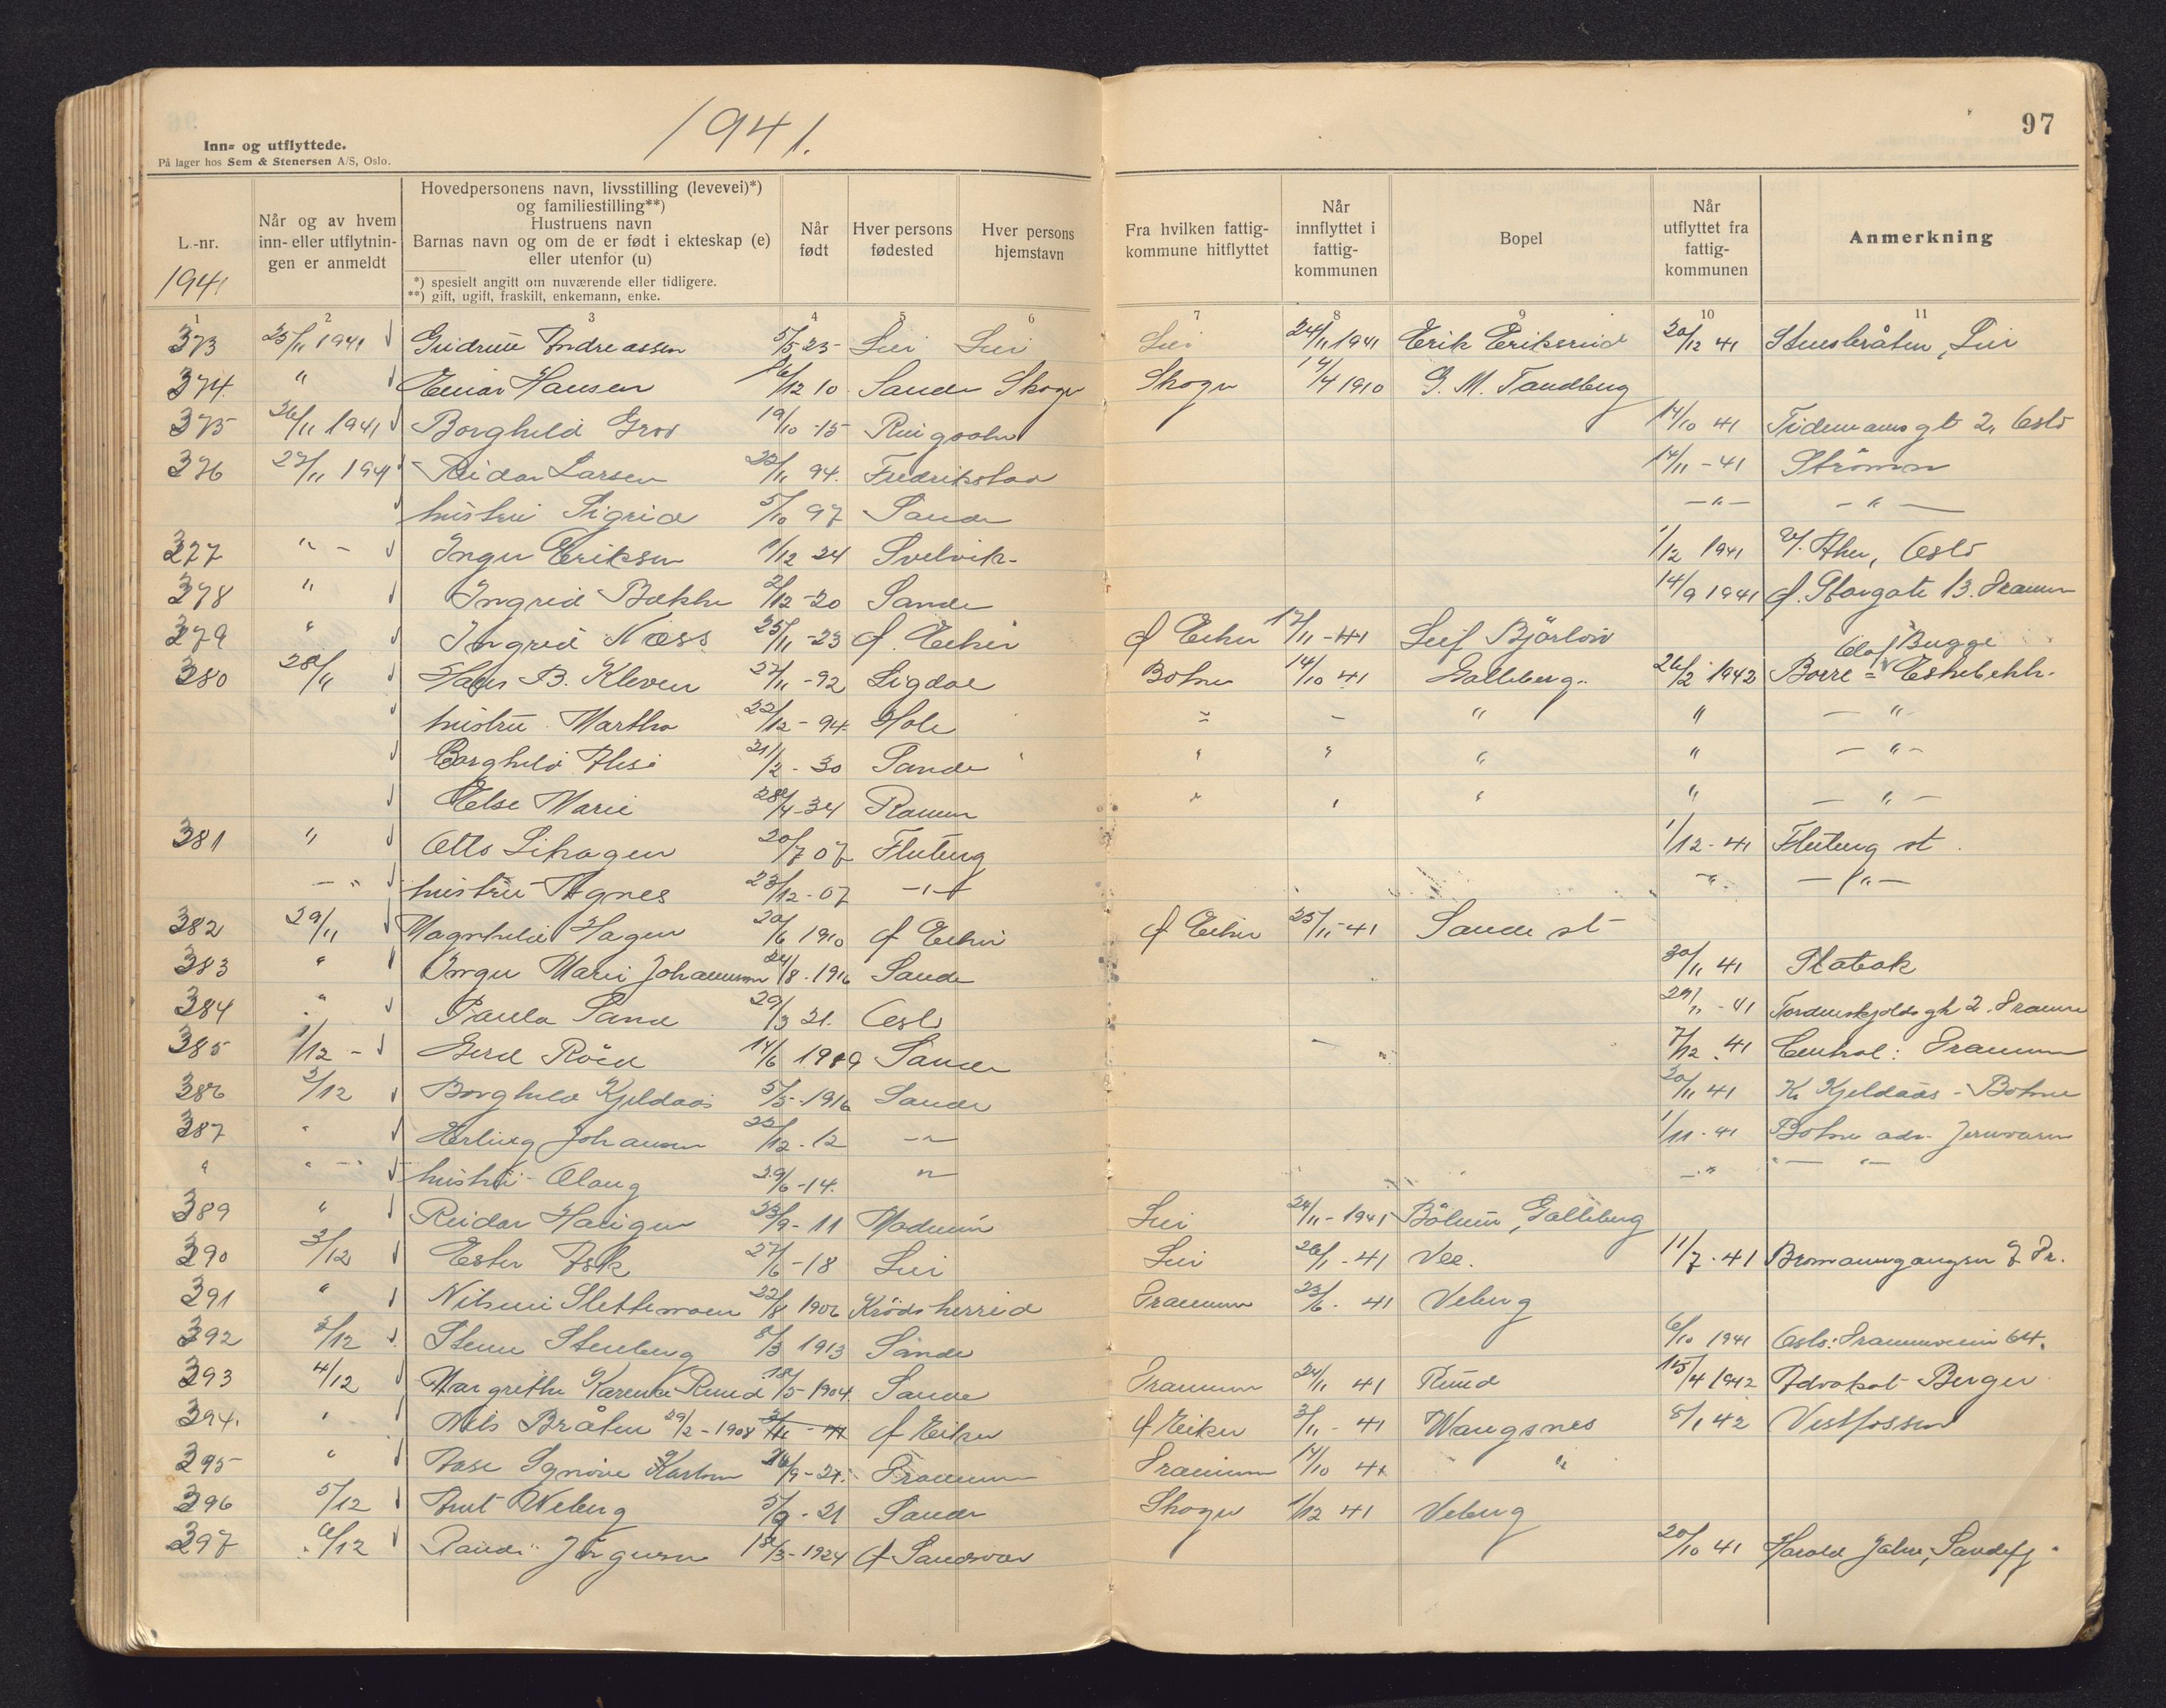 1941.
97
Inn- og utflyttede.
På lager hos Sem & Stenersen A/S, Oslo.
L.-nr.
1941
Når og av hvem
inn- eller utflytnin-
gen er anmeldt
Hovedpersonens navn, livsstilling (levevei)*)
og familiestilling**)
Hustruens navn
Barnas navn og om de er født i ekteskap (e)
eller utenfor (u)
*) spesielt angitt om nuværende eller tidligere.
**) gift, ugift, fraskilt, enkemann, enke.
Når
født
Hver persons
fødested
Hver persons
hjemstavn
Fra hvilken fattig-
kommune hitflyttet
Når
innflyttet i
fattig-
kommunen
Bopel
Når
utflyttet fra
fattig-
kommunen
Anmerkning
1 2 3 4 5 6 7 8 9 10 11
373 25/11 1941 Gudrun Andreassen 5/5-23 Lier Lier Lier 24/11 1941 Erik Eriksrud 20/12 41 Stensbråten, Lier
374. " Einar Hansen 16/12 10 Sande Skoger Skoger 14/4 1910 G. M. Tandberg
375 26/11 1941 Borghild Gros 19/10-15 14/10 41 Tidemansgt 2, Oslo
376 27/11 1941 Reidar Larsen 94. Fredrikstad 14/11-41 Strömm
hustru Sigrid 5/10 97 Sande -"- -"-
377 "- Inger Eriksen 1/12 24 Svelvik- 1/12 1941 Oslo
378 " Ingrid Bakke 2/12-20 Sande 14/9 1941 Storgate 13. Dramm
379 " Ingrid Næss 25/11-23 Ø. Eiker Ø Eiker 17/11-41 Leif Björlow
380 28/11 Hans B. Kleven 27/11-92 Sigdal Botne 14/10 41 Galleberg. 26/2 1942 Borre = Olaf Bugge Eskebekk.
hustru Martha 22/12-94. Hole = - " " -"-
Borghild Alise 21/2-30 Sande " " " " -"-
Else Marie 28/4-34 Ramnes " " " " -"-
381 " Otto Lihagen 20/7 07 Fluberg 1/12-41 Fluberg st.
-" hustru Agnes 23/12-07 -"- -" -"-
382 29/11 Magnhild Hagen 20/6 1910 Ø Eiker Ø Eiker 25/11-41 Sande st
383 " Inger Marie Johannessen 24/8-1916 Sande 30/11 41 Stabæk
384 " Paula Sand 29/3 21. Oslo 29/11-41 Tordenskjoldsgt 2. Dramm
385 1/12- Gerd Röed 14/6 1919 Sande 7/12 41 Central: Drammen
386 2/12 Borghild Kjeldaas 5/5-1916 Sande 20/11 41 K. Kjeldaas - Botne
387 " Erling Johansen 22/12-12 -"- 1/11-41 Botne adr. Jernvaren
" " -" hustru Olaug 29/6-14. " -" "- "-
389 " Reidar Haugen 23/9-11 Modum Lier 24/11-1941 Bölum, Galleberg
390 3/12 Ester Ask 27/6-18 Lier Lier 26/1-41 Vee. 11/7-41 Bromannsgangen 7 Dr.
391 " Nilsine Slettemoen 22/8 1906 Krödsherred Drammen 23/6-41 Veberg
392 3/12 Steen Stenberg 8/3 1913 Sande 6/10 1941 Oslo: Drammensvein 64.
393 4/12 Margrethe Karenke Ruud 18/5-1904. Sande Drammen 24/11 41 Ruud 15/4 1942 Advokat Berger
394. " Nils Bråten 29/2-1908 Ø Eiker Ø Eiker 3/11-41 Wangsnes 8/1 42 Vestfossen
395 " Aase Synnöve Karlsen 26/9-21. Drammen Drammen 14/10 41 "
396 5/12 Arnt Weberg 5/9-21 Sande Skoger 1/12 41 Veberg
397 6/12 Randi Jörgensen 18/3-1924 Ø Sandsvær 20/10 41 Harald Jahre, Sandefj.